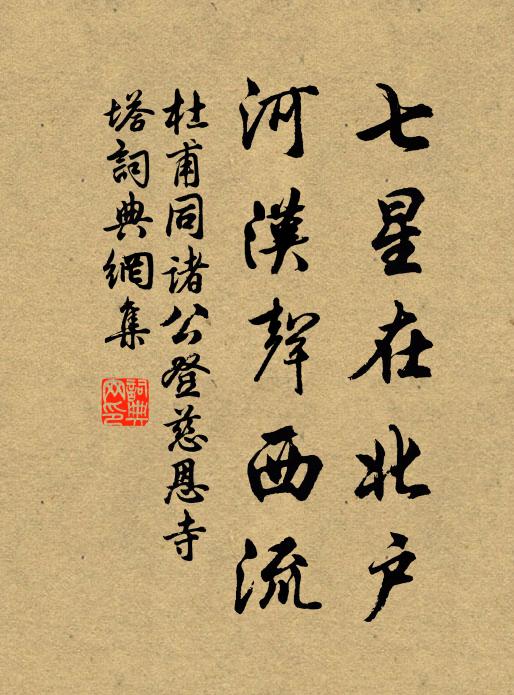 七星在北户
河漢聲西流
杜甫同諸公登慈恩寺
塔詞典網集
詞典網印